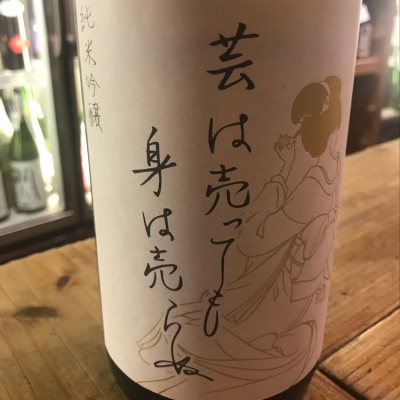 芸は売っても
身は売らぬ
純米吟醸